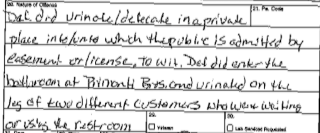 20. Nature of Offense 21. Pa. Code
Def did urinate/defecate in a private
place into/onto which the public is admitted by
easement or license, TO wit. Def did enter the
bathroom at Primanti Bros. and urinated on the
leg of two different customers who were waiting
or using the restroom
Veteran
Lab Services Requested